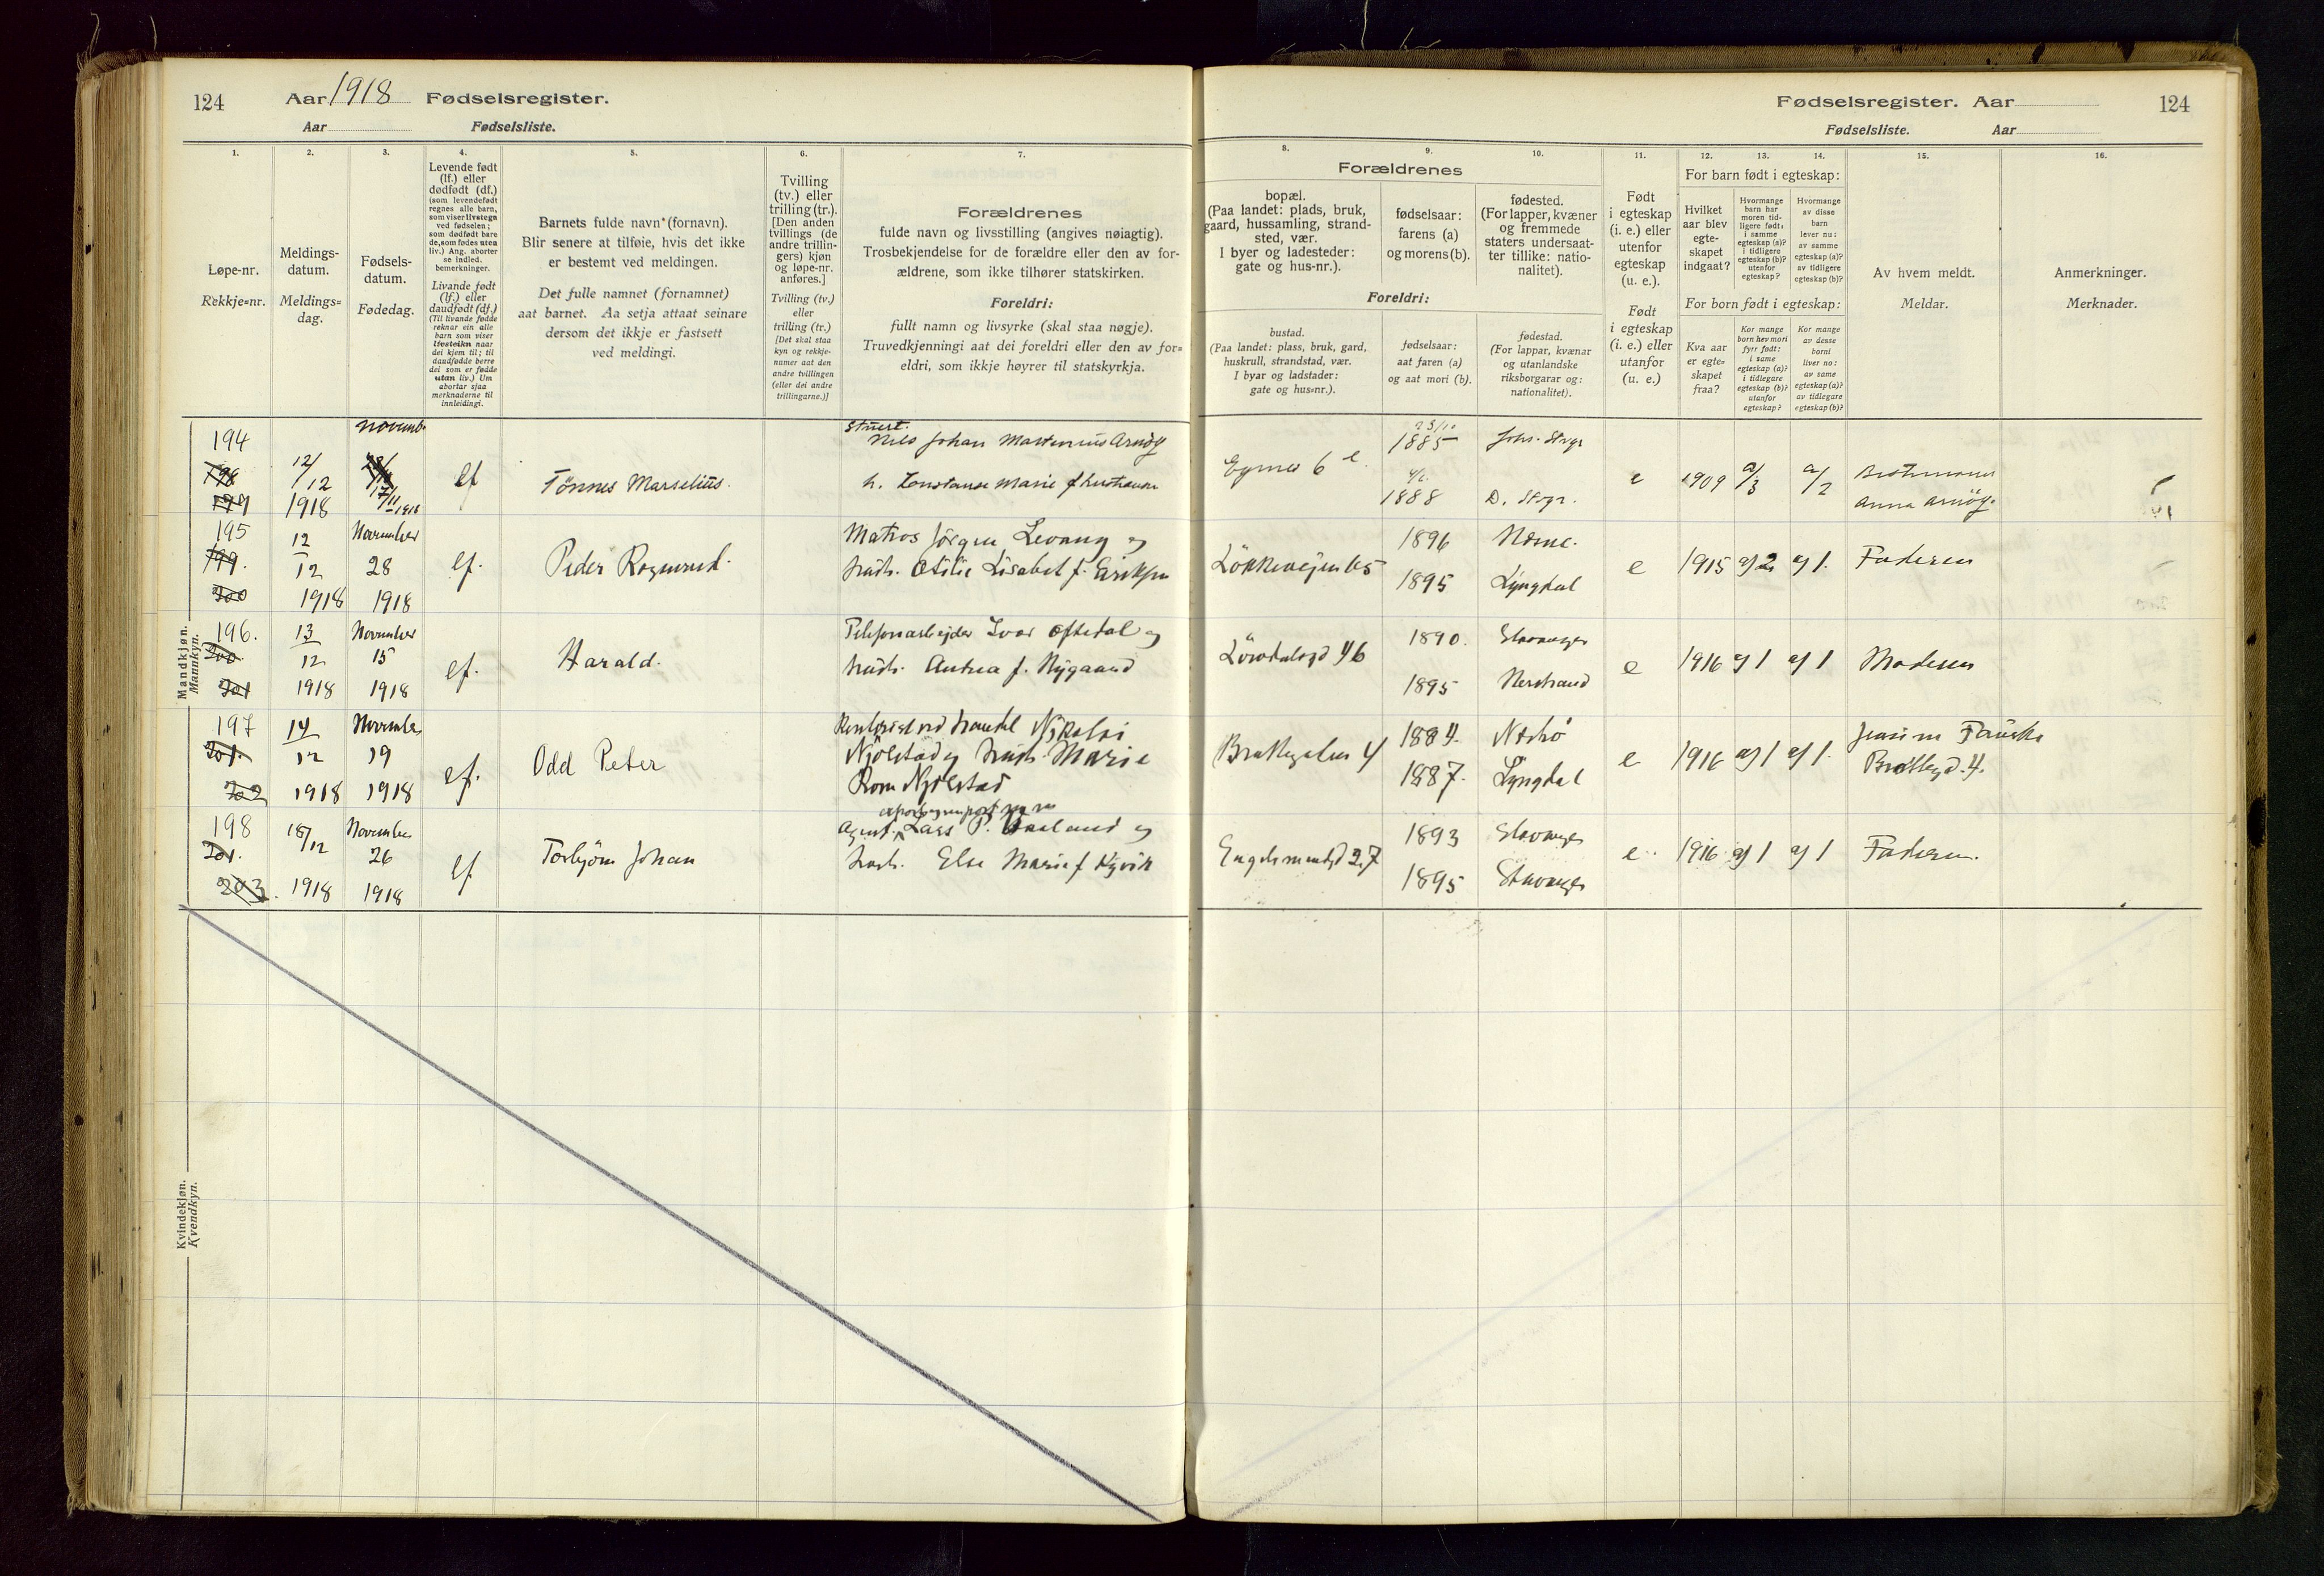 124
Aar 1918 Fødselsregister.
Aar Fødselsliste.
1.
2.
3.
4.
5.
6.
7.
Løpe-nr.
Rekkje=nr.
Meldings-
datum.
Meldings=
dag.
Fødsels-
datum.
Fødedag.
Levende født
(lf.) eller
dødfødt (df.)
(som levendefødt
regnes alle barn,
som viser livstegn
ved fødselen;
som dødfødt bare
de, som fødes uten
liv.) Ang. aborter
se indled.
bemerkninger.
Livande født
(lf.) eller
daudfødt (df.)
(Til livande fødde
reknar ein alle
barn som viser
livsteikn naar
dei kjem til; til
daudfødde berre
dei som er fødde
utan liv.) Um
abortar sjaa
merknaderne til
innleidingi.
Barnets fulde navn (fornavn).
Blir senere at tilføie, hvis det ikke
er bestemt ved meldingen.
Det fulle namnet (fornamnet)
aat barnet. Aa setja attaat seinare
dersom det ikkje er fastsett
ved meldingi.
Tvilling
(tv.) eller
trilling (tr.).
[Den anden
tvillings (de
andre trillin-
gers) kjøn
og løpe-nr.
anføres.]
Tvilling (tv.)
eller
trilling (tr.)
[Det skal staa
kyn og rekkje-
numer aat den
andre tvillingen
(eller dei andre
trillingarne.)]
Forældrenes
fulde navn og livsstilling (angives nøiagtig).
Trosbekjendelse for de forældre eller den av for-
ældrene, som ikke tilhører statskirken.
Foreldri:
fullt namn og livsyrke (skal staa nøgje).
Truvedkjenningi aat dei foreldri eller den av for=
eldri, som ikkje høyrer til statskyrkja.
Mandkjøn.
Mannkyn.
194
198
199
12/
12
1918
Novemb.
17/11 1918
lf
Tönnes Marselius.
Stuert.
Nils Johan Martinius Arnöy
h. Konstanse Marie f Kristiansen
195
199.
200
12
12
1918
November
28
1918
lf.
Peder Ragnvald.
Matros Jörgen Levang og
hust. Otilie Lisabet f. Eriksen
196.
200
201
13
12
1918
November
15
1918
lf.
Harald.
Telefonarbejder Ivar Oftedal og
hust. Andrea f. Nygaard
197
201.
202
14
12
1918
November
19
1918
lf.
Odd Peter
Nikolai
Njölstad og hust. Marie
Rom Njölstad
198
201.
203.
18/12
1918
November
26
1918
lf
Torbjörn Johan
Agent. Lars P. og
hust. Else Marie f
Kvindekjøn.
Kvendkyn.
Fødselsregister. Aar
124
Fødselsliste. Aar
8.
9.
10.
11.
12.
13.
14.
15.
16.
Forældrenes
bopæl.
(Paa landet: plads, bruk,
gaard, hussamling, strand-
sted, vær.
I byer og ladesteder:
gate og hus-nr.).
fødselsaar:
farens (a)
og morens (b).
fødested.
(For lapper, kvæner
og fremmede
staters undersaat-
ter tillike: natio-
nalitet).
Foreldri:
bustad.
(Paa landet: plass, bruk, gard,
huskrull, strandstad, vær.
I byar og ladstader:
gate og hus=nr.).
fødselsaar:
aat faren (a)
og aat mori (b).
fødestad.
(For lappar, kvænar
og utanlandske
riksborgarar og:
nationalitet).
Født
i egteskap
(i. e.) eller
utenfor
egteskap
(u. e.).
Født
i egteskap
(i. e.) eller
utanfor
(u. e.)
For barn født i egteskap:
Hvilket
aar blev
egte-
skapet
indgaat?
Hvormange
barn har
moren tid-
ligere født:
i samme
egteskap (a)?
i tidligere
egteskap (b)?
utenfor
egteskap?
Hvormange
av disse
barn
lever nu:
av samme
egteskap (a)?
av tidligere
egteskap (b)?
For born født i egteskap:
Kva aar
er egte=
skapet
fraa?
Kor mange
born hev mori
fyrr født:
i same
egteskap (a)?
i tidlegare
egteskap (b)?
utanfor
egteskap?
Kor mange
av desse
borni
liver no:
av same
egteskap (a)?
av tidlegare
egteskap (b)?
Av hvem meldt.
Meldar.
Anmerkninger.
Merknader.
1885
1888
D. Stvgr.
e 1909 a/3 a/2
Anna Arnöy.
Lökkevejen 65
1896
1895
Lyngdal
e 1915 a/2 a/1. Faderen
46
1890.
1895
Stavanger
Nerstrand
e 1916 a/1 a/1 Moderen
4
1884.
1887.
Lyngdal
e 1916 a/1 a/1.
4.
27
1893
1895
Stavanger
Stavanger
e. 1916 a/1 a/1 Faderen.